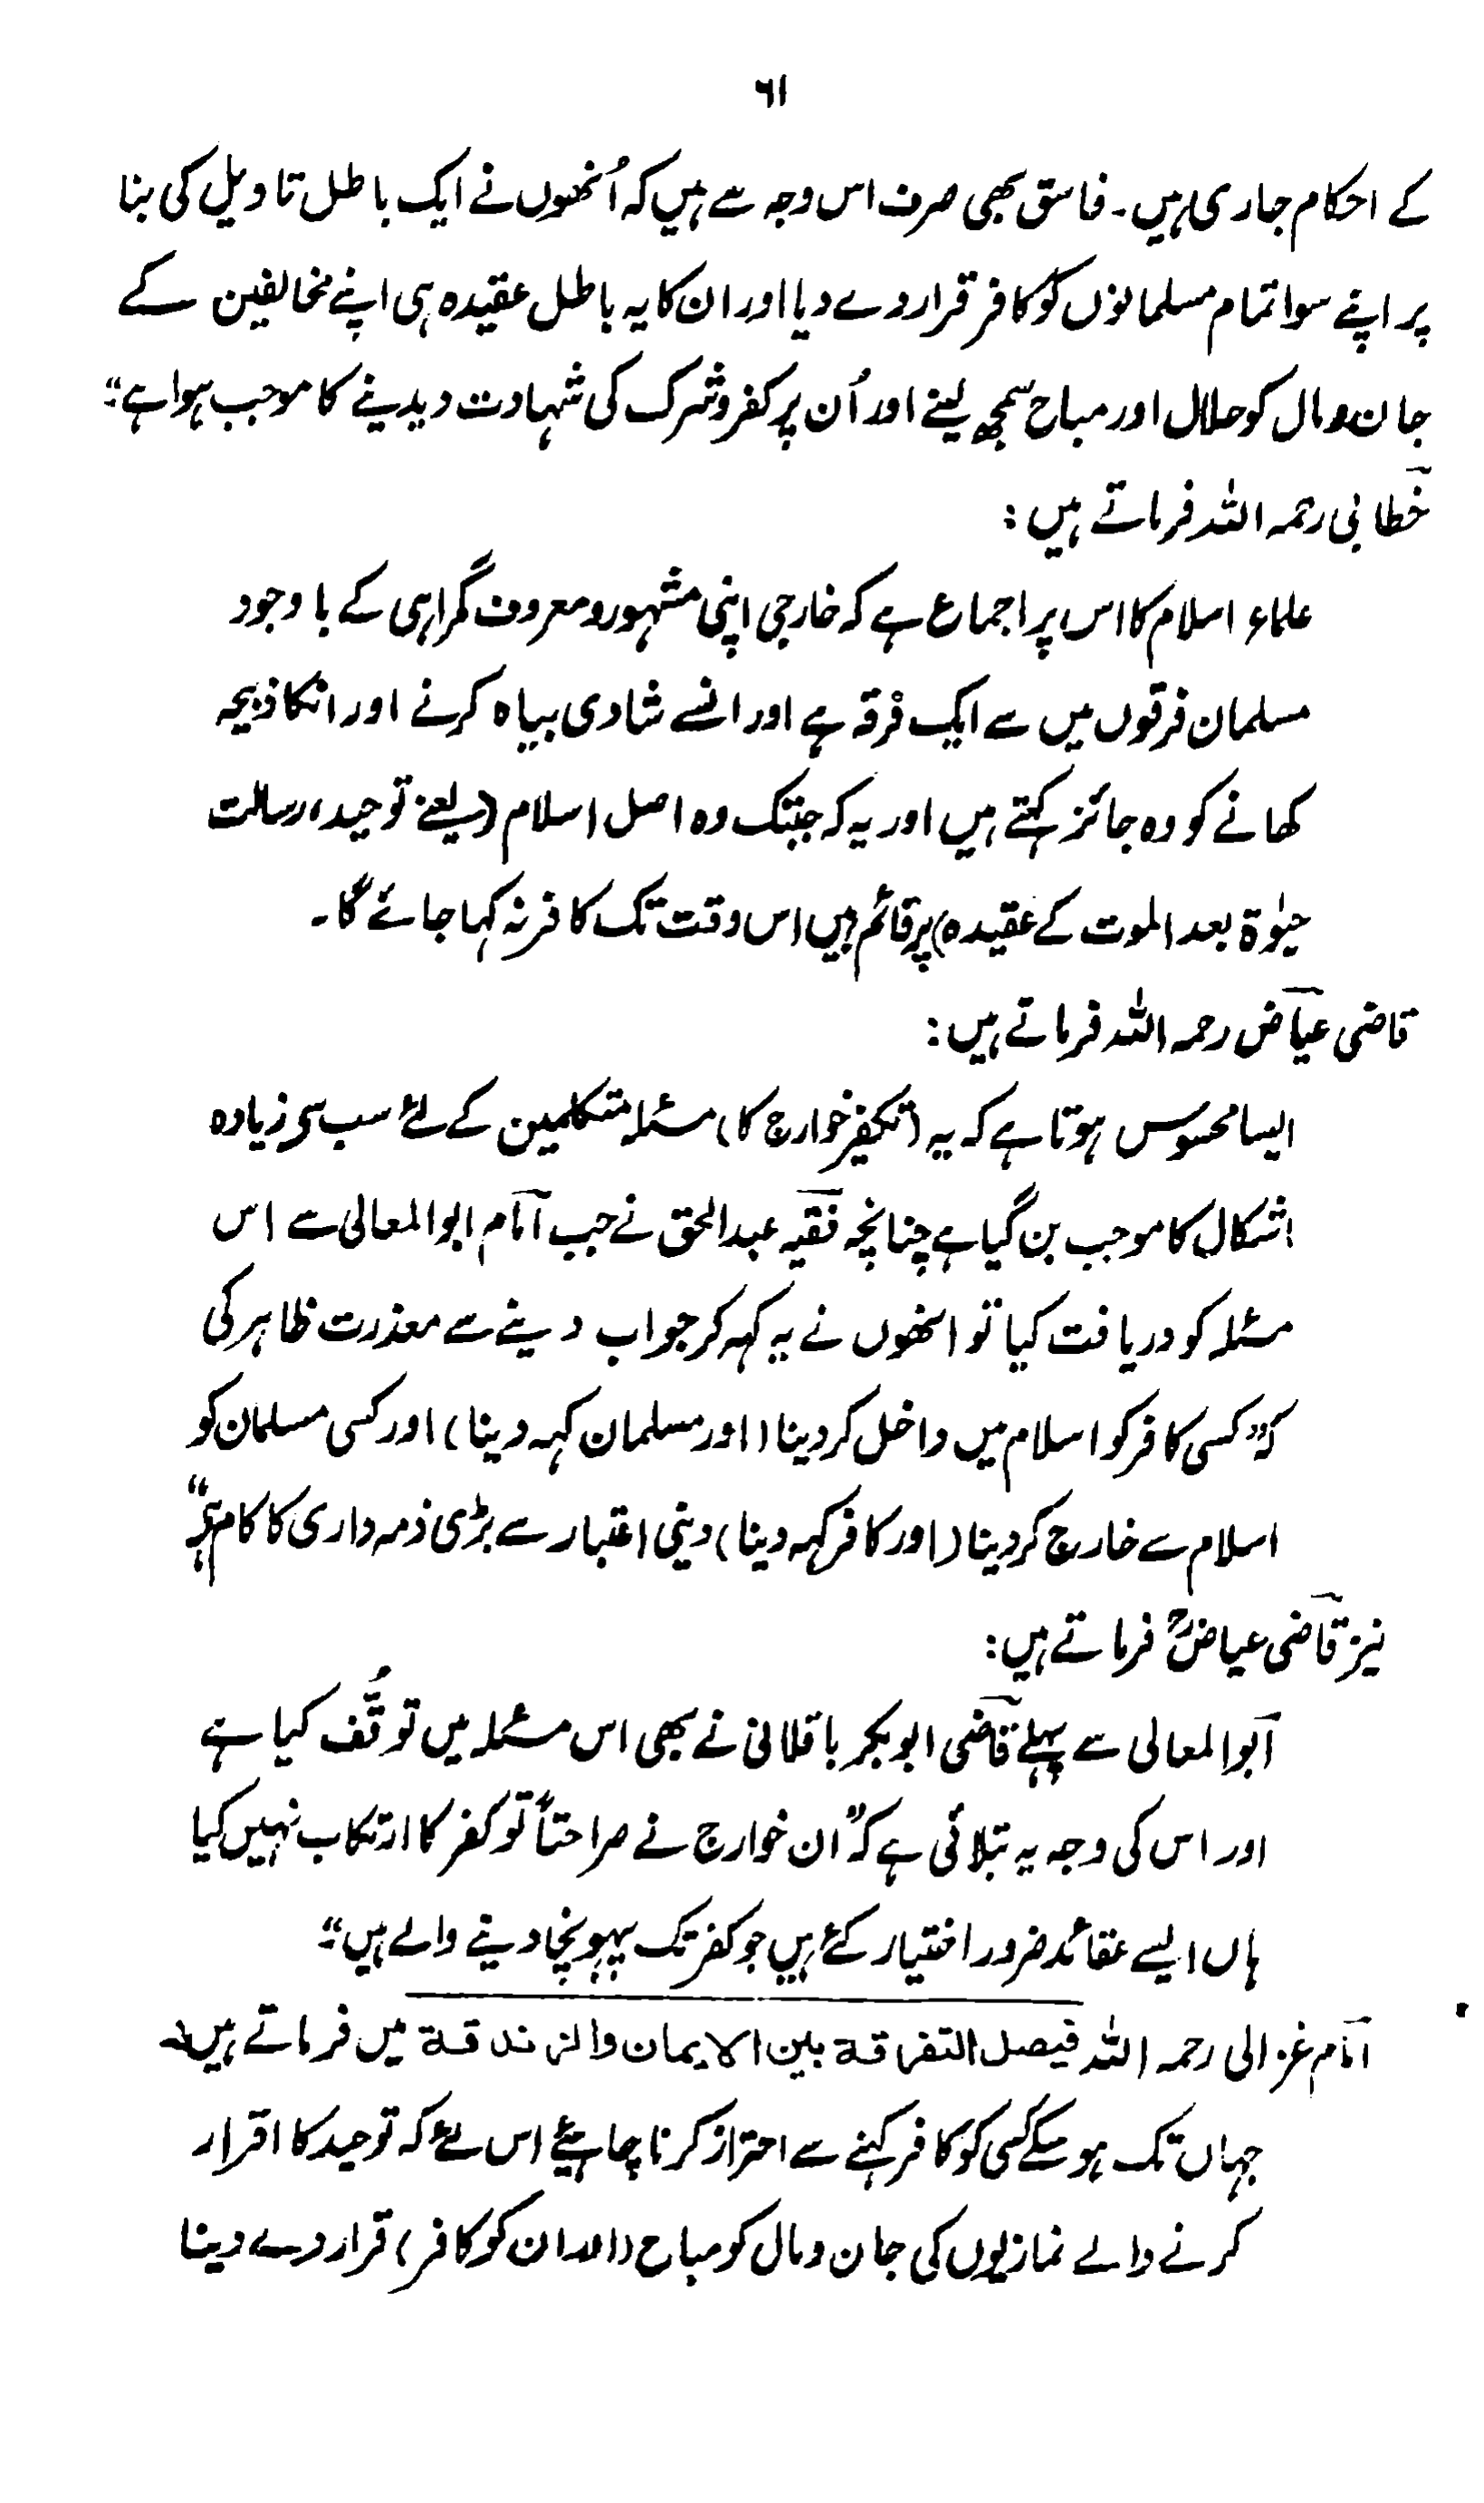 ٦١
کے احکام جاری ہیں۔ فاسق بھی صرف اس وجہ سے ہیں کہ اُنھوں نے ایک باطل تاویل کی بنا
پر اپنے سوا تمام مسلمانوں کو کافر قرار دے دیا اور ان کا یہ باطل عقیدہ ہی اپنے مخالفین کے
جان و مال کو حلال اور مباح سمجھ لینے اور اُن پر کفر و شرک کی شہادت دیدینے کا موجب ہوا ہے“۔
خطابی رحمہ اللہ فرماتے ہیں:
علماء اسلام کا اس پر اجماع ہے کہ خارجی اپنی مشہور و معروف گمراہی کے باوجود
مسلمان فرقوں میں سے ایک فرقہ ہے اور انسے شادی بیاہ کرنے اور انکا ذبیحہ
کھانے کو وہ جائز کہتے ہیں اور یہ کہ جبتک وہ اصل اسلام (یعنے توحید، رسالت
حیٰوۃ بعد الموت کے عقیدہ) پر قائم ہیں اس وقت تک کافر نہ کہا جائے گا۔
قاضی عیاض رحمہ اللہ فرماتے ہیں:
ایسا محسوس ہوتا ہے کہ یہ (تکفیر خوارج کا) مسئلہ متکلمین کے لئے سب سی زیادہ
اشکال کا موجب بن گیا ہے چنانچہ فقیہ عبدالحق نے جب امام ابوالمعالی سے اس
مسئلہ کو دریافت کیا تو انھوں نے یہ کہہ کر جواب دینے سے معذرت ظاہر کی
کہ ”کسی کافر کو اسلام میں داخل کر دینا (اور مسلمان کہہ دینا) اور کسی مسلمان کو
اسلام سے خارج کر دینا (اور کافر کہہ دینا) دینی اعتبار سے بڑی ذمہ داری کا کام ہے“
نیز قاضی عیاضؒ فرماتے ہیں:
ابوالمعالی سے پہلے قاضی ابوبکر باقلانی نے بھی اس مسئلہ میں توقُّف کیا ہے
اور اس کی وجہ یہ بتلائی ہے کہ ”ان خوارج نے صراحتاً تو کفر کا ارتکاب نہیں کیا
ہاں ایسے عقائد ضرور اختیار کئے ہیں جو کفر تک پہونچا دینے والے ہیں“۔
امام غزالی رحمہ اللہ فیصل التفرقة بین الایمان والزندقة میں فرماتے ہیں:
جہاں تک ہو سکے کسی کو کافر کہنے سے احتراز کرنا چاہئے اس لئے کہ توحید کا اقرار
کرنے والے نمازیوں کی جان و مال کو مباح (اور ان کو کافر) قرار دے دینا